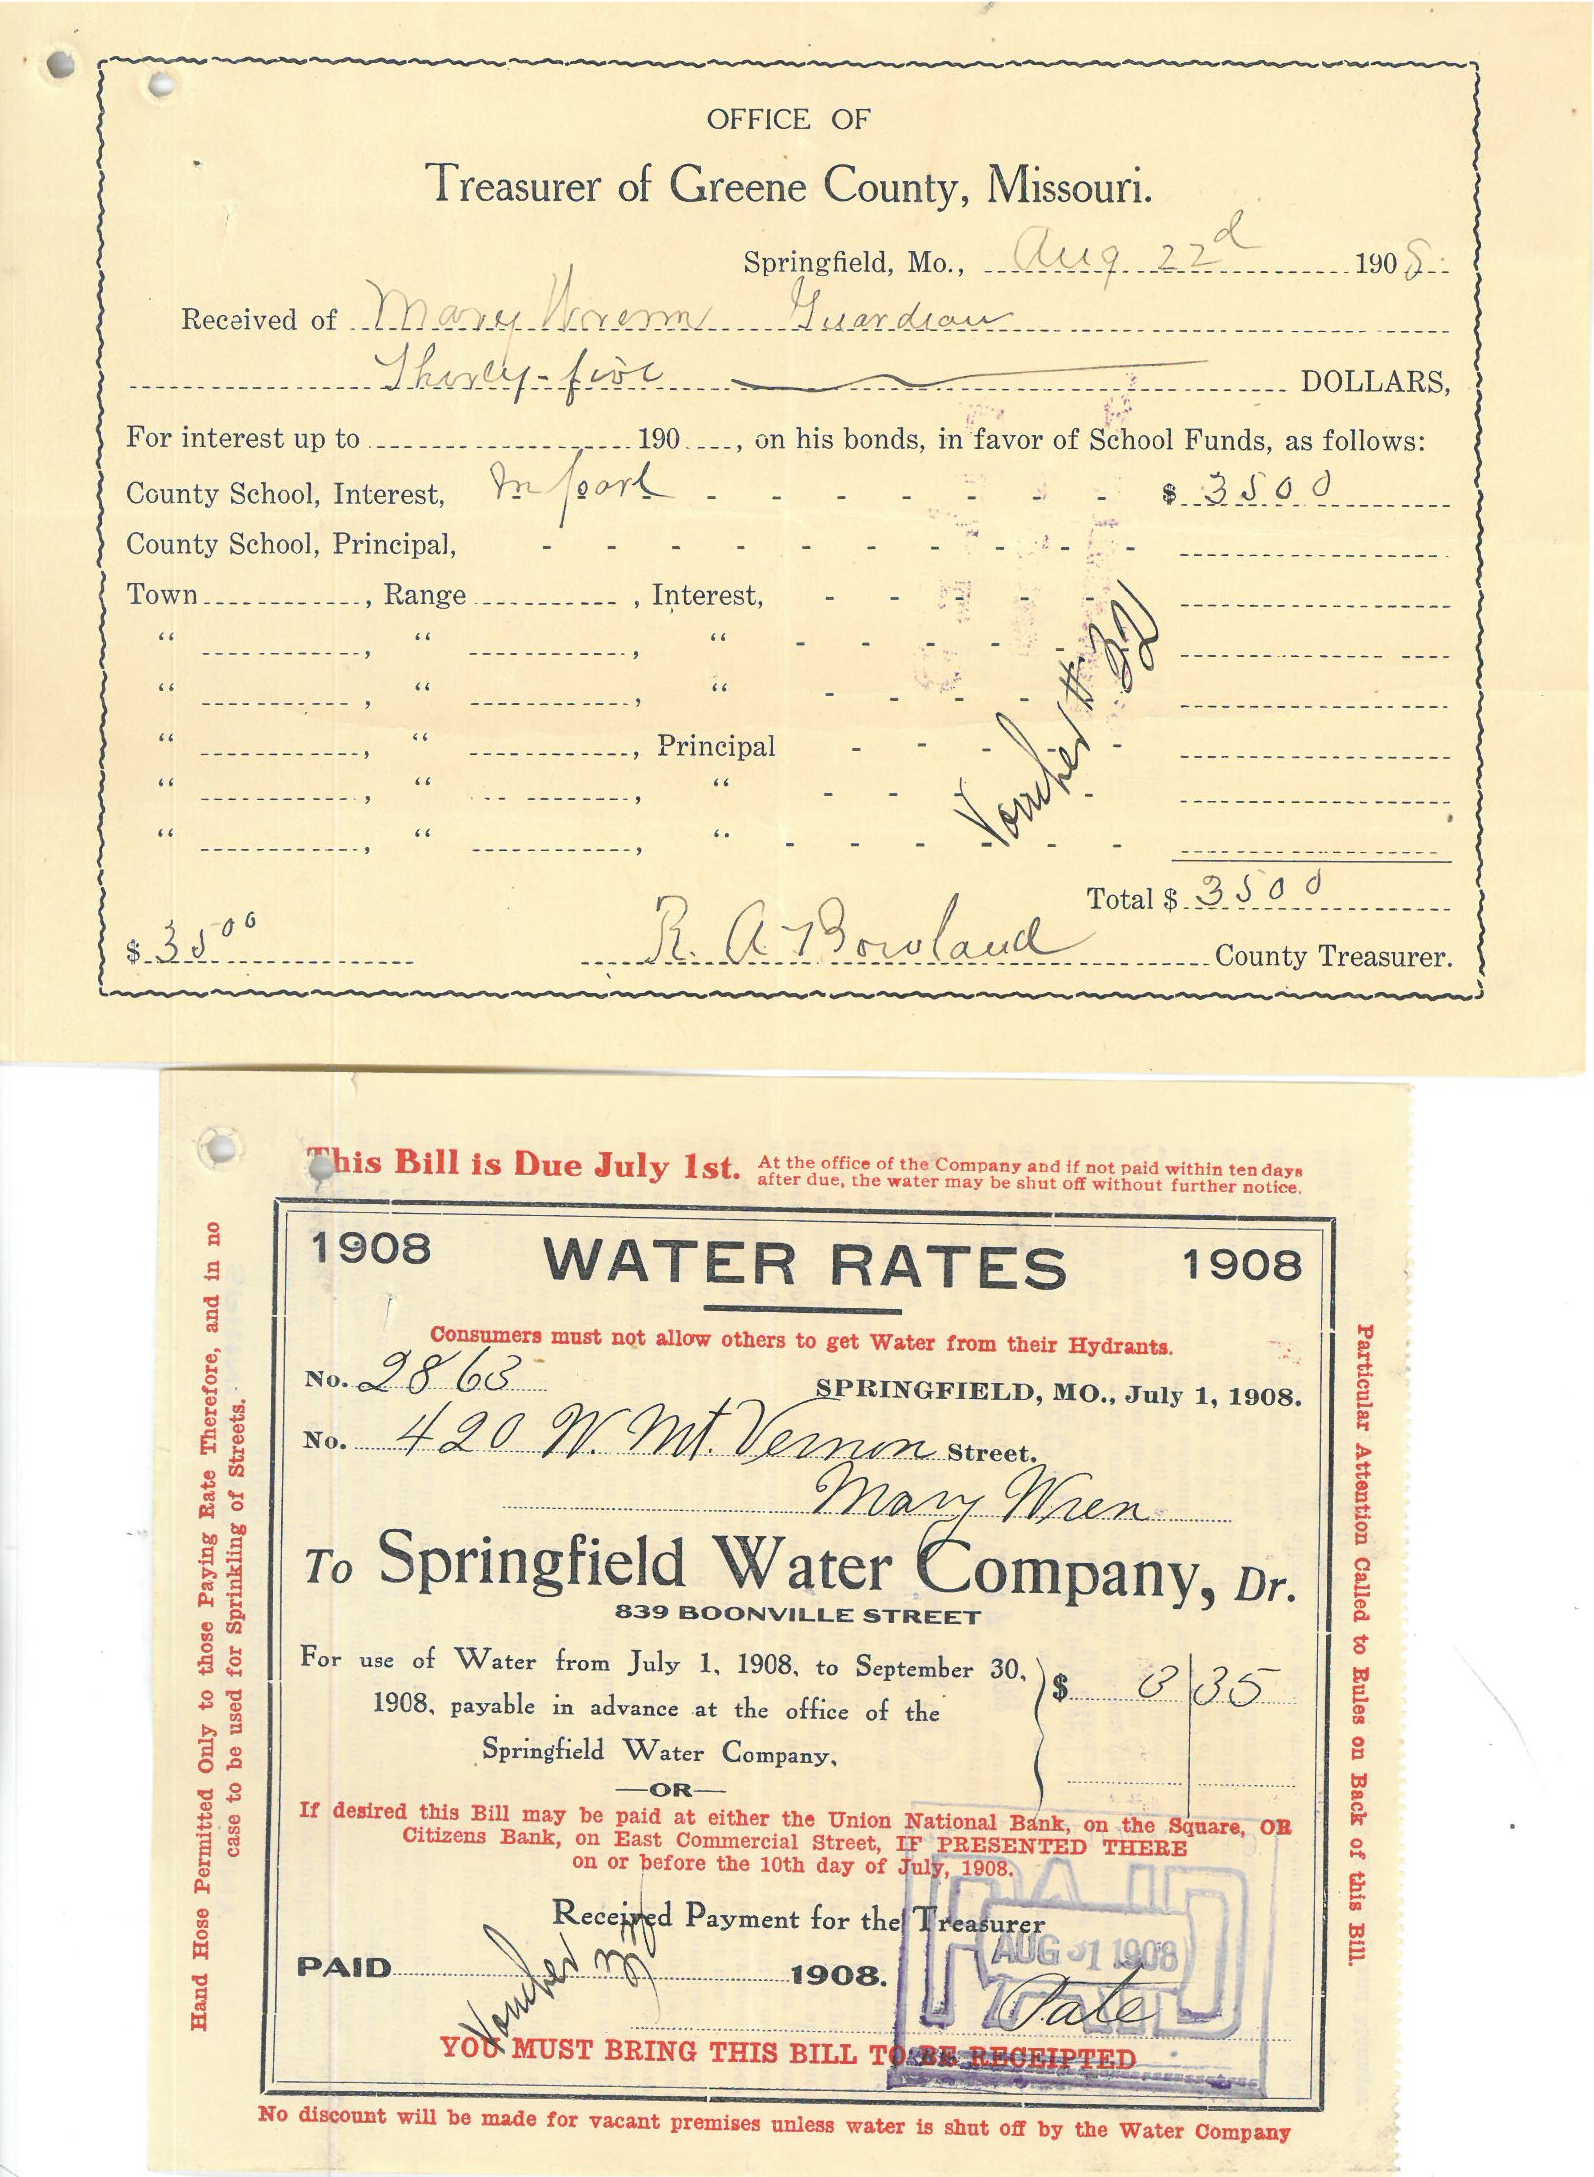 OFFICE OF
Treasurer of Greene County, Missouri.
Springfield, Mo., Aug 22d 1908
Received of Mary Wrenn Guardian
Thirty-five DOLLARS,
For interest up to 190 , on his bonds, in favor of School Funds, as follows:
County School, Interest, In part - - - - - - - $ 3500
County School, Principal, - - - - - - - - - -
Town , Range , Interest, - - - - -
“ , “ , “ - - - - -
“ , “ , “ - - - - -
“ , “ , Principal - - - - -
“ , “ , “ - - - - -
“ , “ , “ - - - - - -
Voucher # 32
Total $ 3500
$ 3500 R. A. Bowland County Treasurer.
This Bill is Due July 1st. At the office of the Company and if not paid within ten days
after due, the water may be shut off without further notice.
1908 WATER RATES 1908
Consumers must not allow others to get Water from their Hydrants.
No. 2863 SPRINGFIELD, MO., July 1, 1908.
No. 420 W. Mt. Vernon Street.
Mary Wren
To Springfield Water Company, Dr.
839 BOONVILLE STREET
For use of Water from July 1, 1908, to September 30, $ 3 35
1908, payable in advance at the office of the
Springfield Water Company,
—OR—
If desired this Bill may be paid at either the Union National Bank, on the Square, OR
Citizens Bank, on East Commercial Street, IF PRESENTED THERE
on or before the 10th day of July, 1908.
Received Payment for the Treasurer
PAID 1908.
Voucher
PAID
AUG 31 1908
Tate
YOU MUST BRING THIS BILL TO BE RECEIPTED
No discount will be made for vacant premises unless water is shut off by the Water Company
Hand Hose Permitted Only to those Paying Rate Therefore, and in no
case to be used for Sprinkling of Streets.
Particular Attention Called to Rules on Back of this Bill.